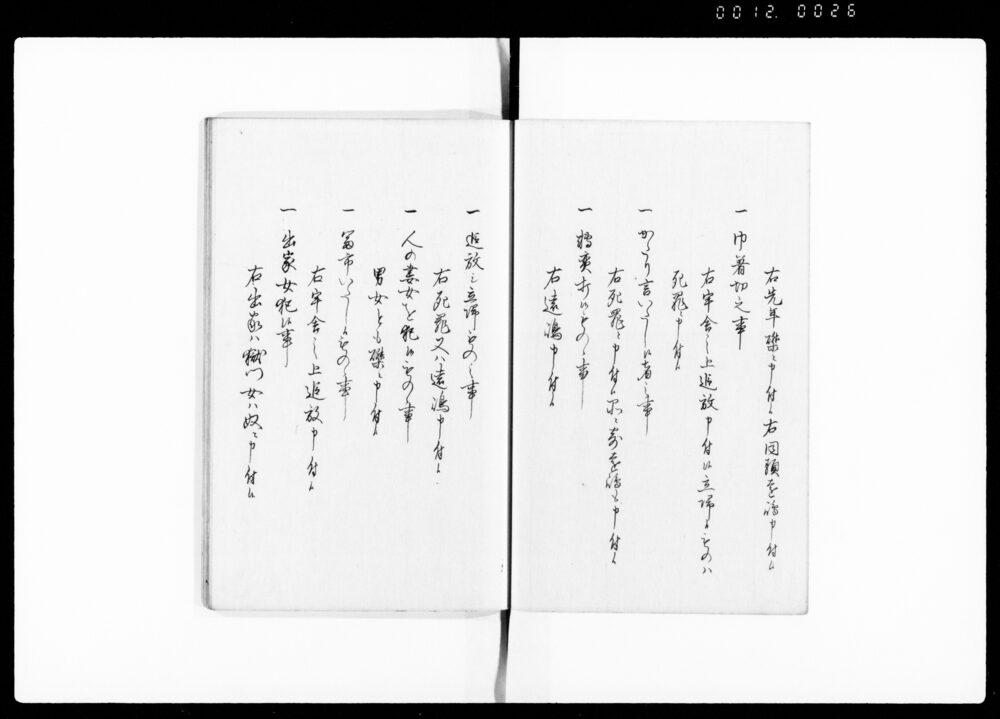 0012. 0026
右先年磔ニ申付候右同類遠嶋申付候
一 巾着切之事
右牢舎之上追放申付候立帰候ものハ
死罪申付候
一 かたり言いたし候者之事
右死罪ニ申付候品ニ寄遠嶋も申付候
一 博奕打候もの之事
右遠嶋申付候
一 追放之立帰もの之事
右死罪又ハ遠嶋申付候
一 人の妻女を犯候もの事
男女とも磔ニ申付候
一 富市いたし候もの事
右牢舎之上追放申付候
一 出家女犯候事
右出家ハ獄門女ハ奴ニ申付候